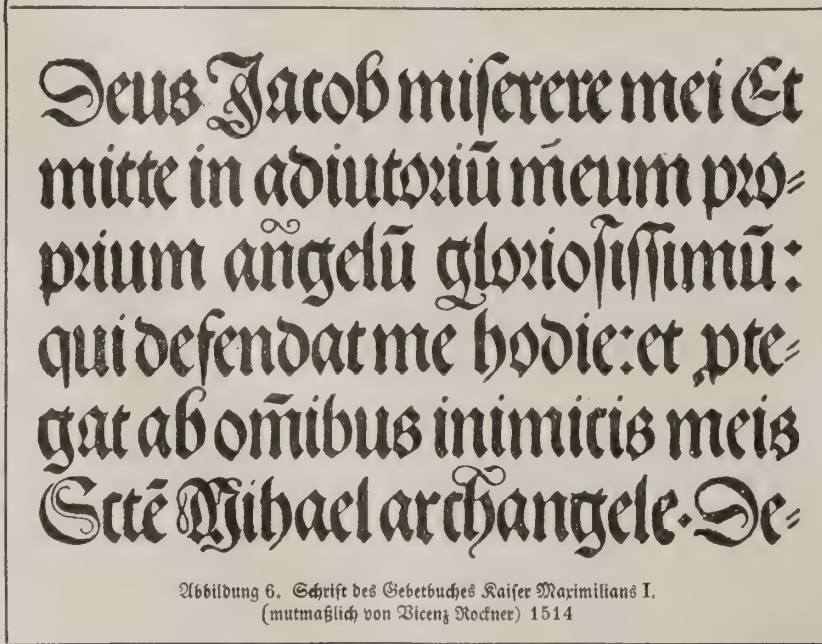 Deus Jacob miſerere mei Et
mitte in adiutoriū m̄eum pro⸗
prium an̄gelū glorioſiſſimū:
qui defendat me hodie: et ꝓte⸗
gat ab om̄ibus inimicis meis
Sctē Mihael archangele. De⸗
Abbildung 6. Schrift des Gebetbuches Kaiſer Maximilians I.
(mutmaßlich von Vicenz Rockner) 1514